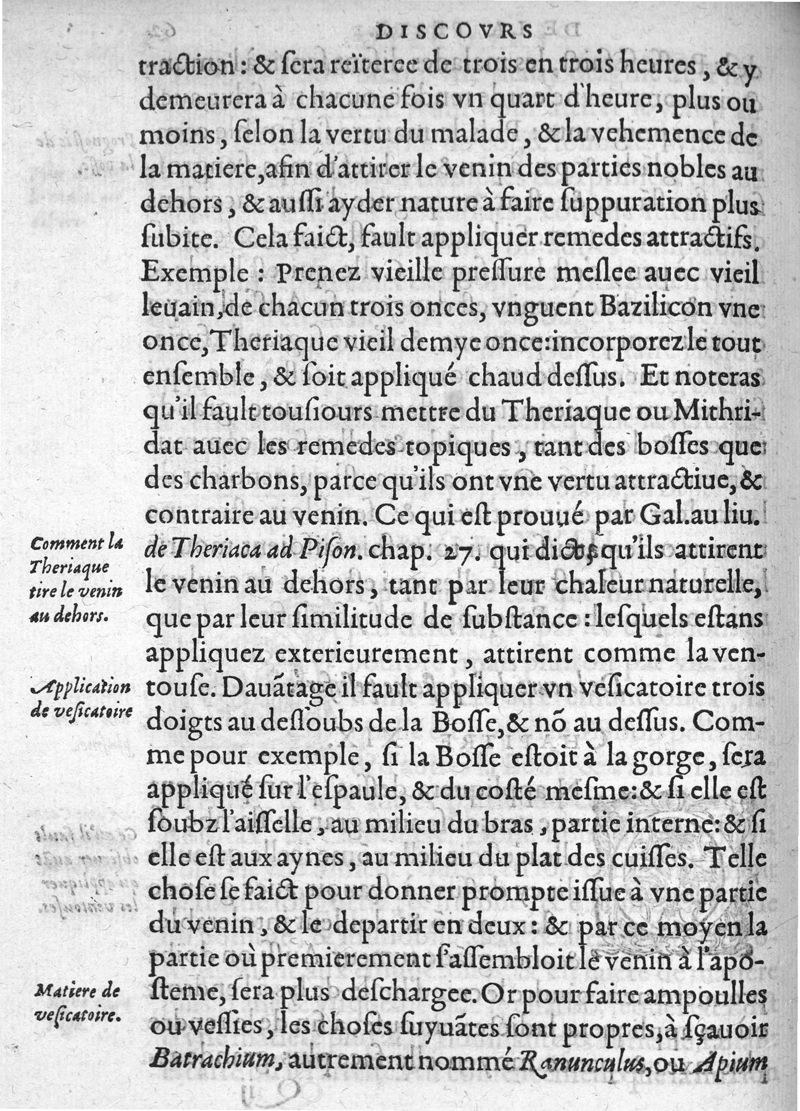 DISCOVRS
traction: & ſera reïteree de trois en trois heures, & y
demeurera à chacune fois vn quart d'heure, plus ou
moins, ſelon la vertu du malade, & la vehemence de
la matiere, afin d'attirer le venin des parties nobles au
dehors, & auſſi ayder nature à faire ſuppuration plus
ſubite. Cela faict, fault appliquer remedes attractifs.
Exemple : Prenez vieille preſſure meſlee auec vieil
leuain, de chacun trois onces, vnguent Bazilicon vne
once, Theriaque vieil demye once: incorporez le tout
enſemble, & ſoit appliqué chaud deſſus. Et noteras
qu'il fault touſiours mettre du Theriaque ou Mithri-
dat auec les remedes topiques, tant des boſſes que
des charbons, parce qu'ils ont vne vertu attractiue, &
contraire au venin. Ce qui eſt prouué par Gal. au liu.
Comment la
Theriaque
tire le venin
au dehors.
de Theriaca ad Piſon. chap. 27. qui dict, qu'ils attirent
le venin au dehors, tant par leur chaleur naturelle,
que par leur ſimilitude de ſubſtance : leſquels eſtans
appliquez exterieurement, attirent comme la ven-
Application
de veſicatoire
touſe. Dauātage il fault appliquer vn veſicatoire trois
doigts au deſſoubs de la Boſſe, & nō au deſſus. Com-
me pour exemple, ſi la Boſſe eſtoit à la gorge, ſera
appliqué ſur l'eſpaule, & du coſté meſme: & ſi elle eſt
ſoubz l'aiſſelle, au milieu du bras, partie interne: & ſi
elle eſt aux aynes, au milieu du plat des cuiſſes. Telle
choſe ſe faict pour donner prompte iſſue à vne partie
du venin, & le departir en deux : & par ce moyen la
partie où premierement ſ'aſſembloit le venin à l'apo-
Matiere de
veſicatoire.
ſteme, ſera plus deſchargee. Or pour faire ampoulles
ou veſſies, les choſes ſuyuātes ſont propres, à ſçauoir
Batrachium, autrement nommé Ranunculus, ou Apium